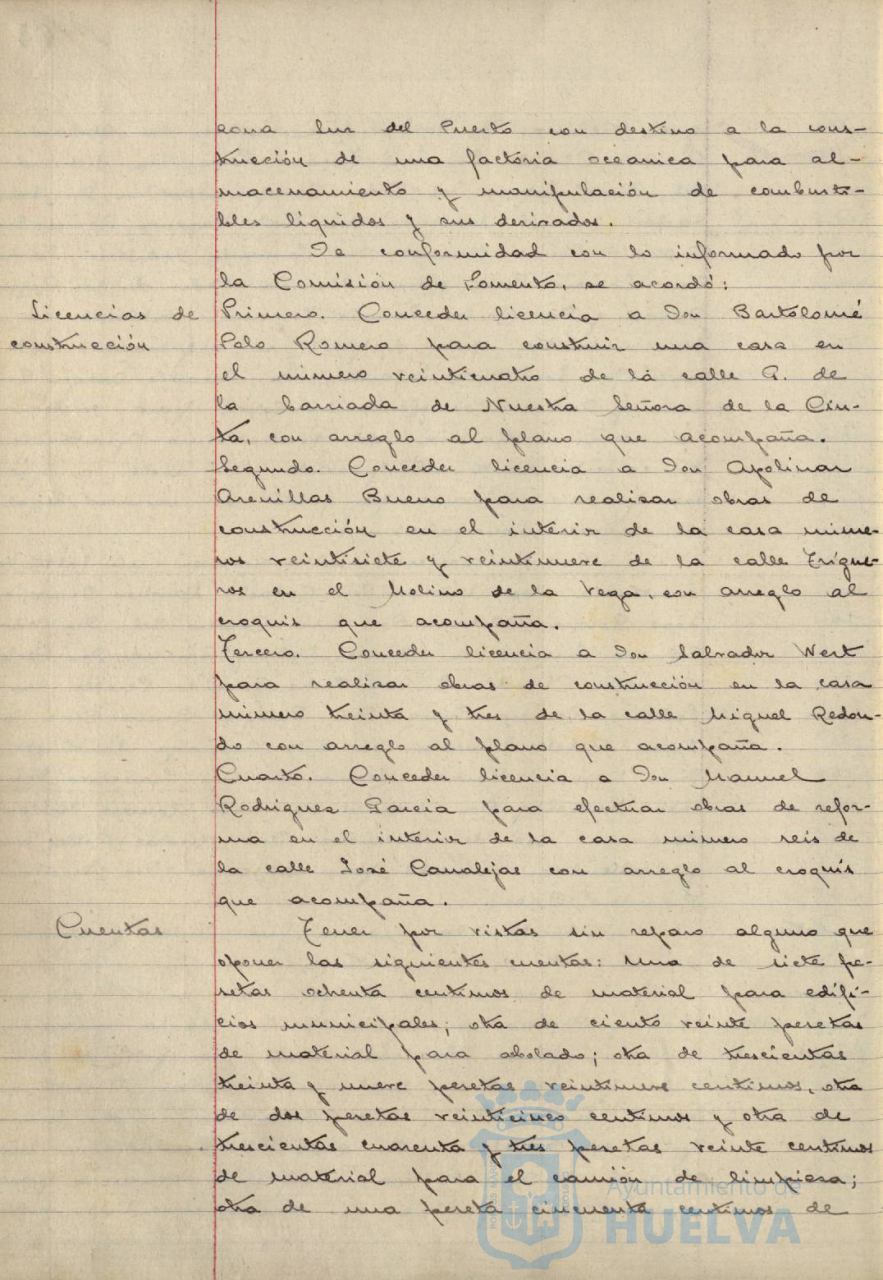 zona Sur del Puerto con destino a la cons-
trucción de una factoria oceanica para al-
macenamiento y manipulación de combusti-
bles líquidos y sus derivados.
De conformidad con lo informado por
la Comisión de Fomento, se acordó:
Licencias de
construcción
Primero. Conceder licencia a Don Bartolomé
Polo Romero para construir una casa en
el número veinticuatro de la calle G. de
la barriada de Nuestra Señora de la Cin-
ta, con arreglo al plano que acompaña.
Segundo. Conceder licencia a Don Apolinar
Arenillas Bueno para realizar obras de
construcción en el interior de la casa núme-
ros veintisiete y veintinueve de la calle Trigue-
ros en el Molino de la Vega, con arreglo al
croquis que acompaña.
Tercero. Conceder licencia a Don Salvador Wert
para realizar obras de construcción en la casa
número treinta y tres de la calle Miguel Redon-
do con arreglo al plano que acompaña.
Cuarto. Conceder licencia a Don Manuel
Rodriguez García para efectuar obras de refor-
ma en el interior de la casa número seis de
la calle José Canalejas con arreglo al croquis
que acompaña.
Cuentas
Tener por vistas sin reparo alguno que
oponer las siguientes cuentas: una de siete pe-
setas ochenta centimos de material para edifi-
cios municipales; otra de ciento veinte pesetas
de material para abolado; otra de trescientas
treinta y nueve pesetas veintinueve centimos, otra
de dos pesetas veinticinco centimos y otra de
trescientas cuarenta y tres pesetas veinte centimos
de material para el camión de limpieza;
otra de una peseta cincuenta centimos de
Ayuntamiento de
HUELVA